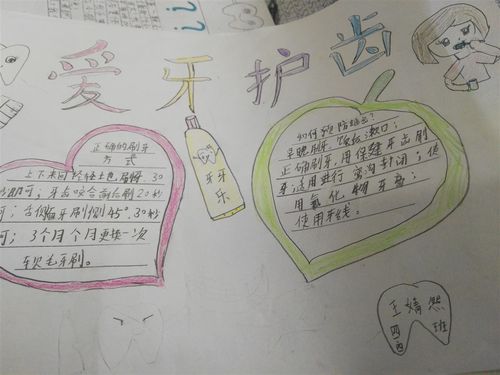 爱牙护齿
正确的刷牙
方式
上下来回轻轻
30
即可；牙齿咬合前后刷20秒
牙刷倾斜45°.30秒
可；3个月个月更换一次
软毛牙刷。
牙牙乐
如何预防蛀牙？
早晚刷牙，饭后漱口；
正确刷牙，用保健牙齿刷
牙；适用进行窝沟封闭；使
用氟化物牙膏；
使用牙线。
王婧
四
班